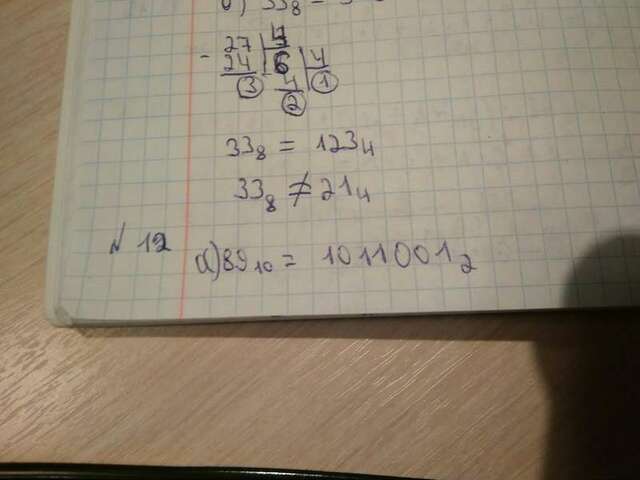 б) 33₈ =
- 27 | 4
24 | 6 | 4
3 4 1
2
33₈ = 123₄
33₈ ≠ 21₄
№ 12 а) 89₁₀ = 1011001₂